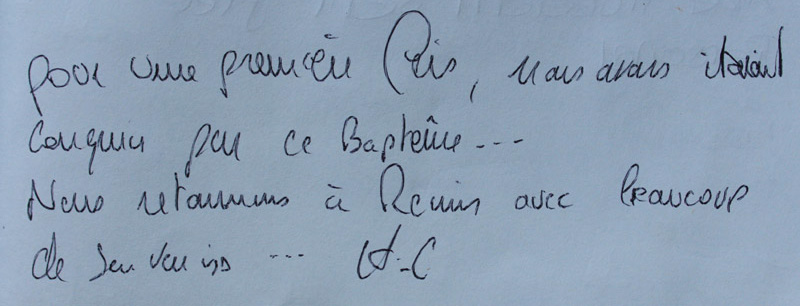 pour une première fois, nous avons étaient
conquis par ce Baptême...
Nous retournons à Reims avec beaucoup
de souvenirs ... H-C